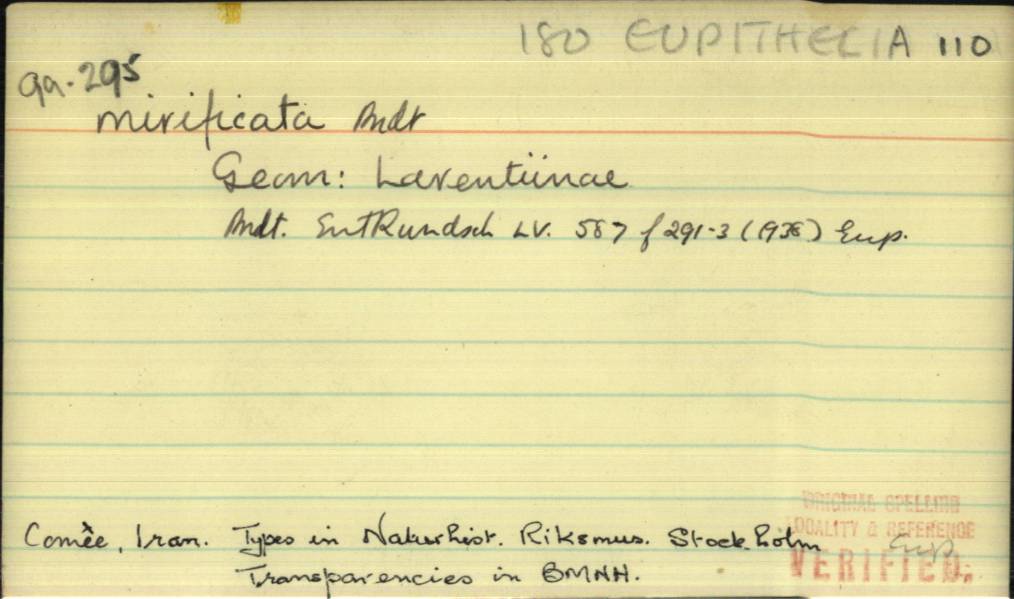 180 EUPITHECIA 110
99.295
mirificata Brdt
Geom: Larentiinae
Brdt. Ent Rundsch LV. 587 f 291-3 (1938) Eup.
Comèe, Iran. Types in Naturhist. Riksmus. Stockholm
Transparencies in BMNH.
ORIGINAL SPELLING
LOCALITY & REFERENCE
Eup
VERIFIED.